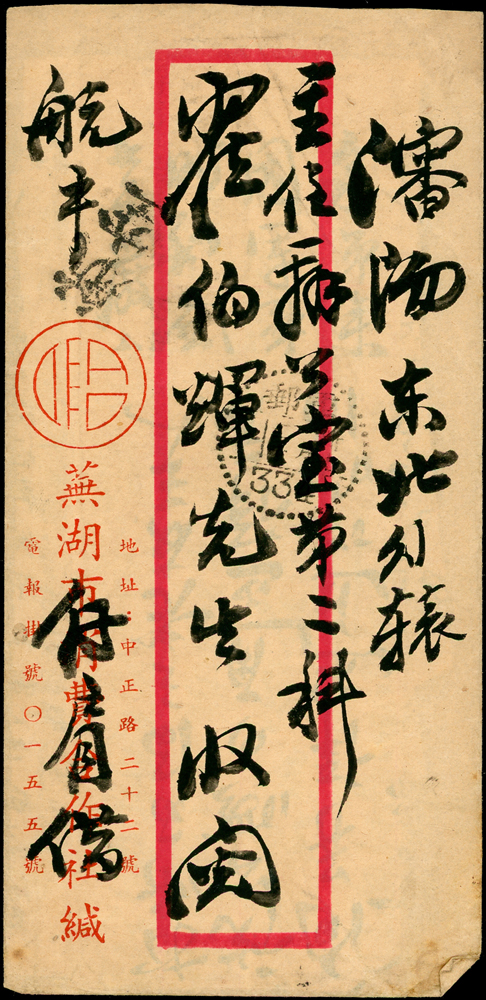 瀋陽东北行辕
主任辦公室第二科
翟伯輝先生收
航平
地址：中正路二十二號
蕪湖市消費合作社緘
電報掛號〇一五五號
郵
33